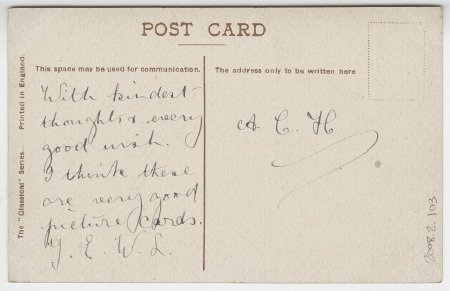 POST CARD
This space may be used for communication.
The address only to be written here
The "Classical" Series. Printed in England.
With kindest
thoughts & every
good wish.
I think these
are very good
picture cards.
Y. E. W. L.
A. C. H
2008.2.103